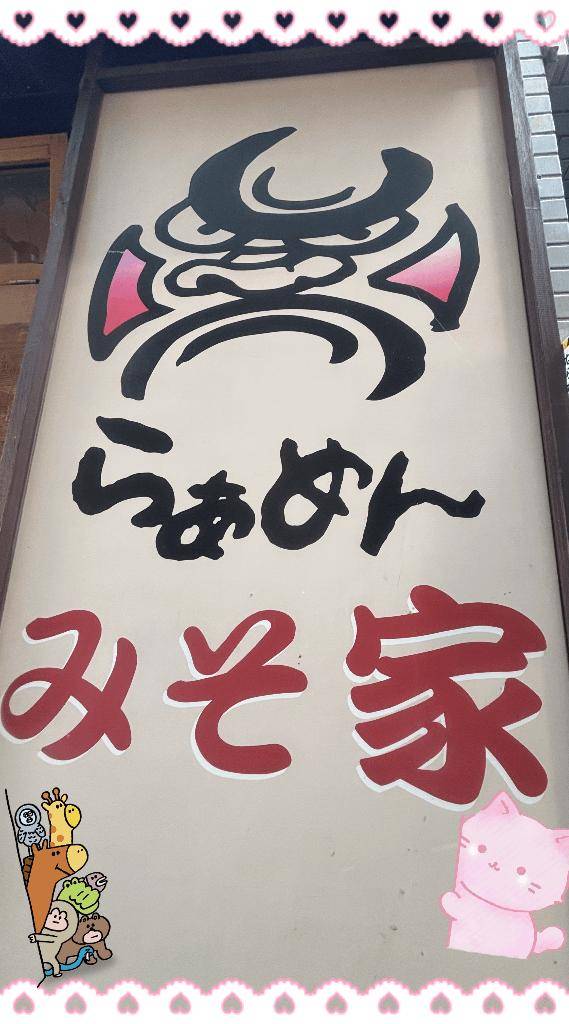 らぁめん
みそ家